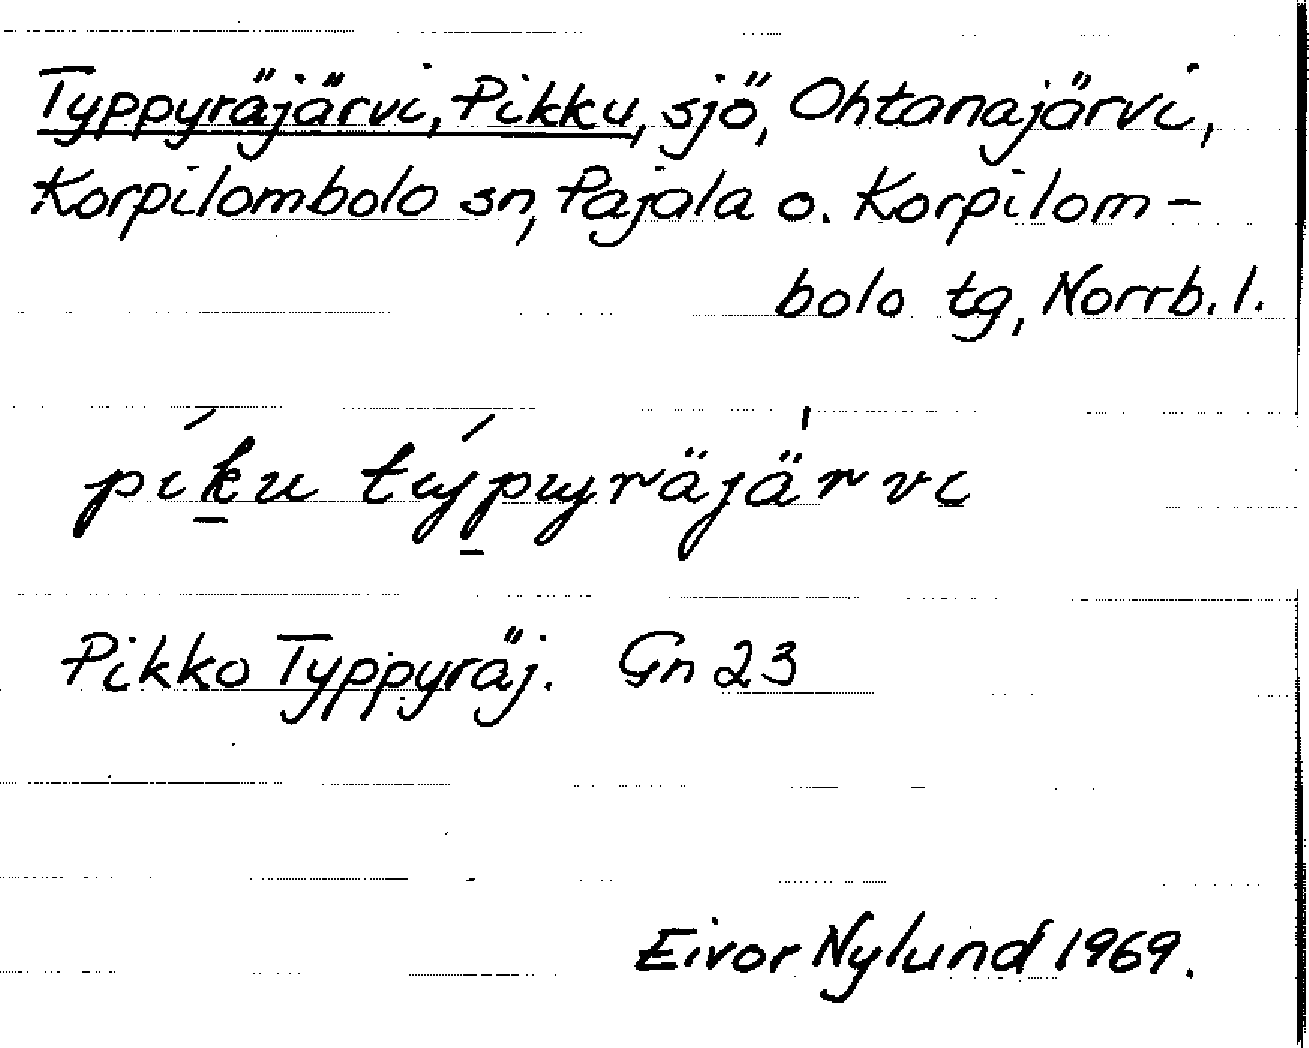 Typpyräjärvi, Pikku, sjö, Ohtanajärvi,
Korpilombolo sn, Pajala o. Korpilom-
bolo tg, Norrb. l.
pik̲u typ̲yräjärvi
Pikko Typpyräj. Gn 23
Eivor Nylund 1969.